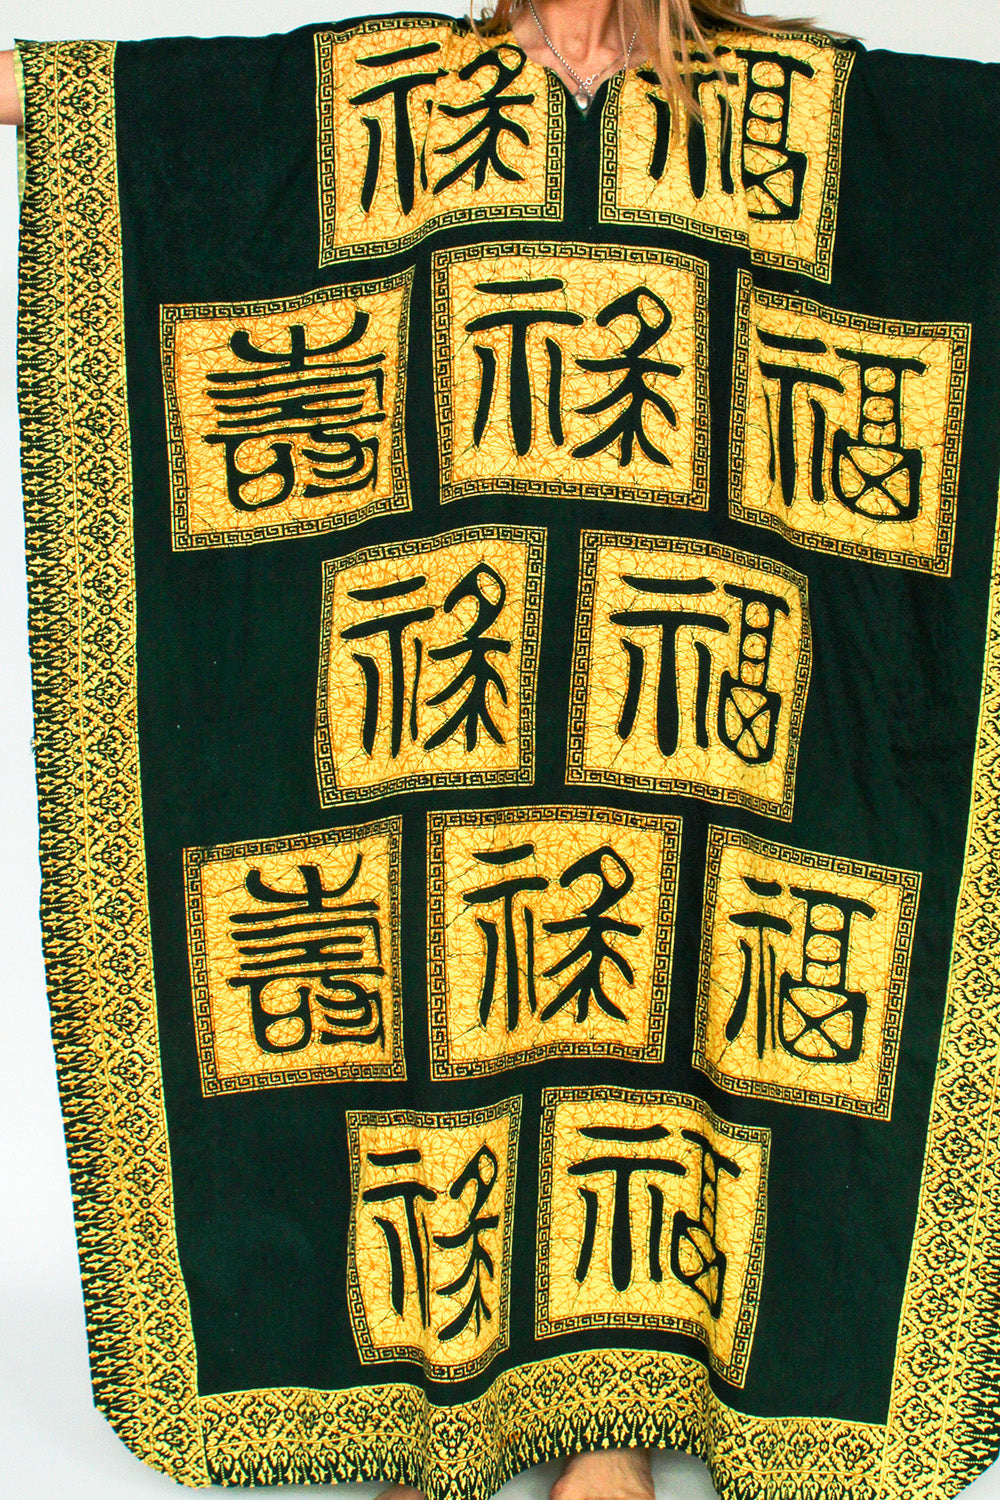 祿 福
壽 祿 福
祿 福
壽 祿 福
祿 福